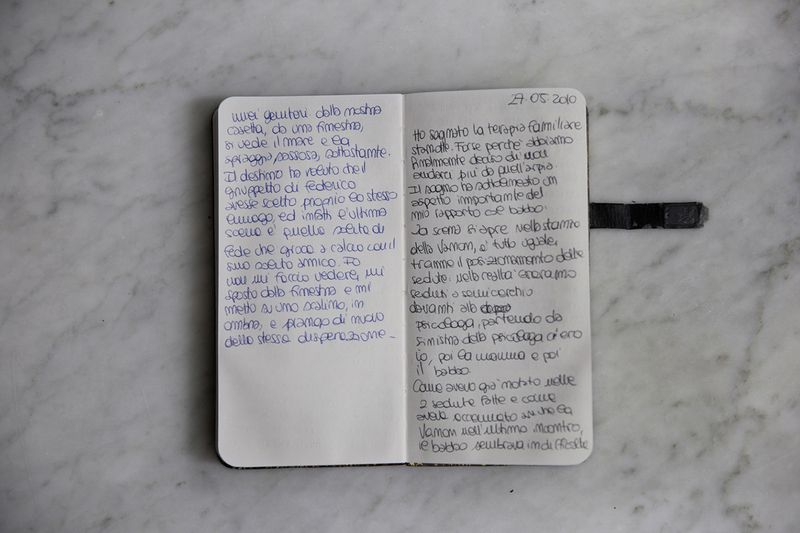 miei genitori dalla nostra
casetta, da una finestra,
si vede il mare e la
spiaggia, sassosa, sottostante.
Il destino ha voluto che il
gruppetto di Federico
avesse scelto proprio lo stesso
luogo, ed infatti l'ultima
scena è quella solita di
Fede che gioca a calcio con il
suo solito amico. Io
non mi faccio vedere, mi
sposto dalla finestra e mi
metto su uno scalino, in
ombra, e piango di nuovo
della stessa disperazione.
27.05.2010
Ho sognato la terapia familiare
stanotte. Forse perché abbiamo
finalmente deciso di non
andarci più da quell'arpia.
Il sogno ha sottolineato un
aspetto importante del
mio rapporto col babbo.
La scena si apre nella stanza
della Vamon, è tutto uguale,
tranne il posizionamento delle
sedute: nella realtà eravamo
seduti a semicerchio
davanti alla
psicologa, partendo da
sinistra della psicologa c'ero
io, poi la mamma e poi
il babbo.
Come avevo già notato nelle
2 sedute fatte e come
aveva accennato anche la
Vamon nell'ultimo incontro,
il babbo sembrava indifferente